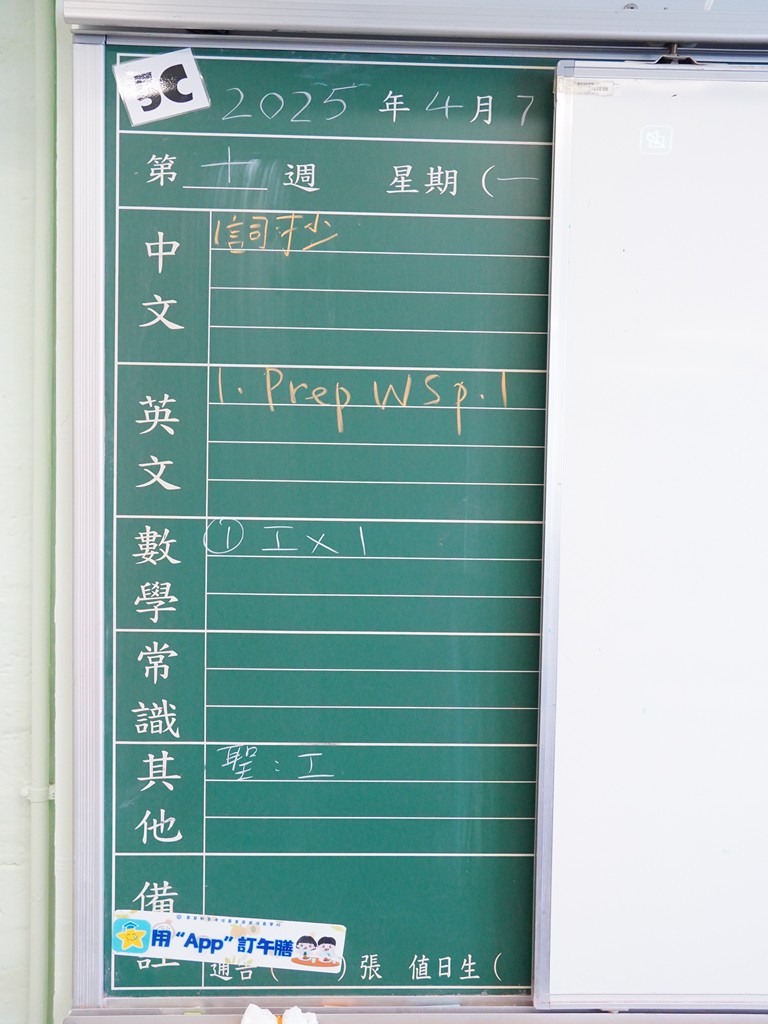 5C
2025 年 4 月 7
第 十 週 星期 (一
中文
1 詞抄
英文
1. Prep WS p.1
數學
① 工 x 1
常識
其他
聖 : 工
備註
用 “App” 訂午膳
通告 ( ) 張 值日生 (